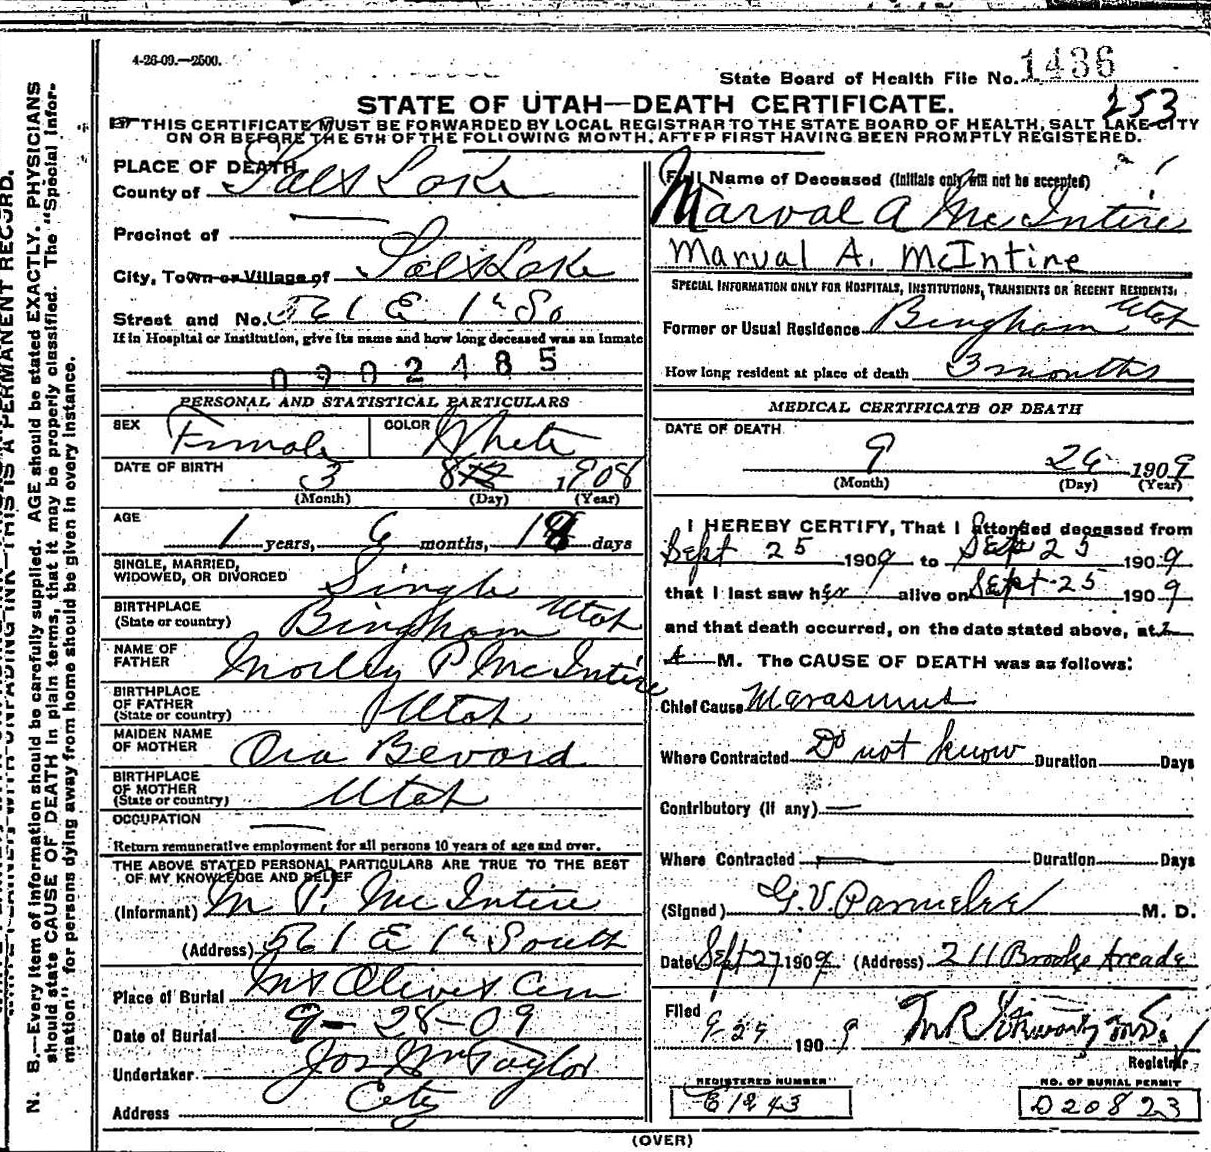 4-26-09.—2500.
State Board of Health File No. 1436
253
STATE OF UTAH—DEATH CERTIFICATE.
THIS CERTIFICATE MUST BE FORWARDED BY LOCAL REGISTRAR TO THE STATE BOARD OF HEALTH, SALT LAKE CITY
ON OR BEFORE THE 5TH OF THE FOLLOWING MONTH, AFTER FIRST HAVING BEEN PROMPTLY REGISTERED.
PLACE OF DEATH
County of Salt Lake
Precinct of
City, Town or Village of Salt Lake
Street and No. 561 E 1st So
If in Hospital or Institution, give its name and how long deceased was an inmate
0902485
PERSONAL AND STATISTICAL PARTICULARS
SEX Female COLOR White
DATE OF BIRTH 3 8 1908
(Month) (Day) (Year)
AGE
1 years, 6 months, 18 days
SINGLE, MARRIED,
WIDOWED, OR DIVORCED Single
BIRTHPLACE
(State or country) Bingham Utah
NAME OF
FATHER Morley P McIntire
BIRTHPLACE
OF FATHER
(State or country) Utah
MAIDEN NAME
OF MOTHER Ora Bevard
BIRTHPLACE
OF MOTHER
(State or country) Utah
OCCUPATION
Return remunerative employment for all persons 10 years of age and over.
THE ABOVE STATED PERSONAL PARTICULARS ARE TRUE TO THE BEST
OF MY KNOWLEDGE AND BELIEF
(Informant) M P. McIntire
(Address) 561 E 1st South
Place of Burial Mt Olivet Cem
Date of Burial 9-28-09
Undertaker Jos Wm Taylor
Address City
Full Name of Deceased (Initials only will not be accepted)
Marval A McIntire
Marval A. McIntire
SPECIAL INFORMATION ONLY FOR HOSPITALS, INSTITUTIONS, TRANSIENTS OR RECENT RESIDENTS.
Former or Usual Residence Bingham Utah
How long resident at place of death 3 months
MEDICAL CERTIFICATE OF DEATH
DATE OF DEATH
9 26 1909
(Month) (Day) (Year)
I HEREBY CERTIFY, That I attended deceased from
Sept 25 1909 to Sept 25 1909
that I last saw her alive on Sept 25 1909
and that death occurred, on the date stated above, at 2
A M. The CAUSE OF DEATH was as follows:
Chief Cause Marasmus
Where Contracted Do not know Duration Days
Contributory (if any)
Where Contracted Duration Days
(Signed) G.V. Parmelee M. D.
Date Sept 27 1909 (Address) 211 Brooks Arcade
Filed
9 29 1909 M.R. Stewart M.D.
Registrar
REGISTERED NUMBER
C1243
NO. OF BURIAL PERMIT
D20823
(OVER)
N. B.—Every item of information should be carefully supplied. AGE should be stated EXACTLY. PHYSICIANS
should state CAUSE OF DEATH in plain terms, that it may be properly classified. The "Special Infor-
mation" for persons dying away from home should be given in every instance.